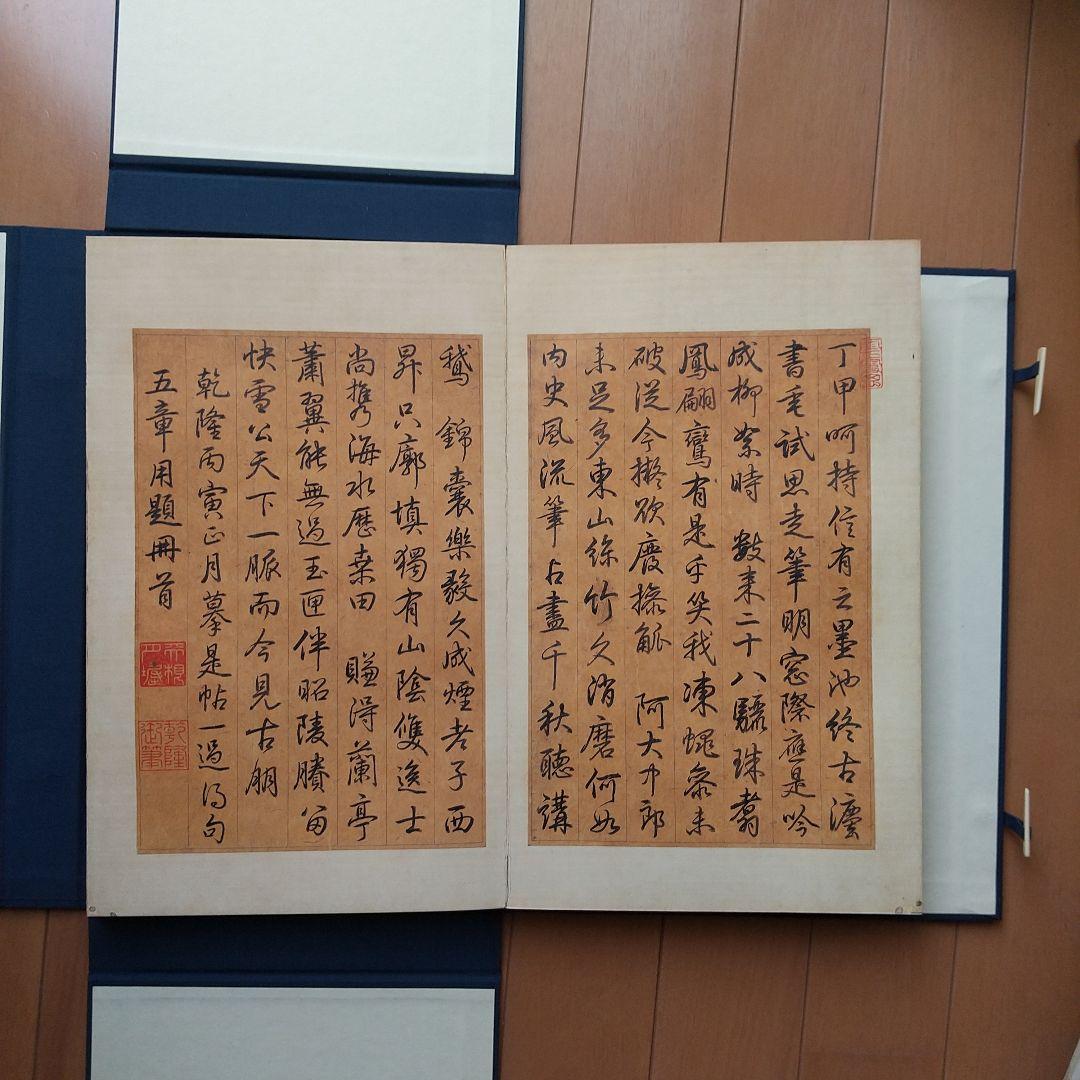 丁甲呵持信有之墨池終古瀋
書毛試思走筆明窓際應是吟
成柳絮時 數来二十八驪珠翥
鳳翩鸞有是乎笑我凍蠅叅未
破從今擬欲廢操觚 阿大中郎
未足多東山絲竹久消磨何如
内史風流筆占盡千秋聽講
鵝 錦囊樂毅久成煙老子西
昇只廓填獨有山陰雙逸士
尚攜海水歷桑田 賺得蘭亭
蕭翼能無過玉匣伴昭陵賸留
快雪公天下一脈而今見古朋
乾隆丙寅正月摹是帖一過得句
五章用題冊首
乾隆
御筆